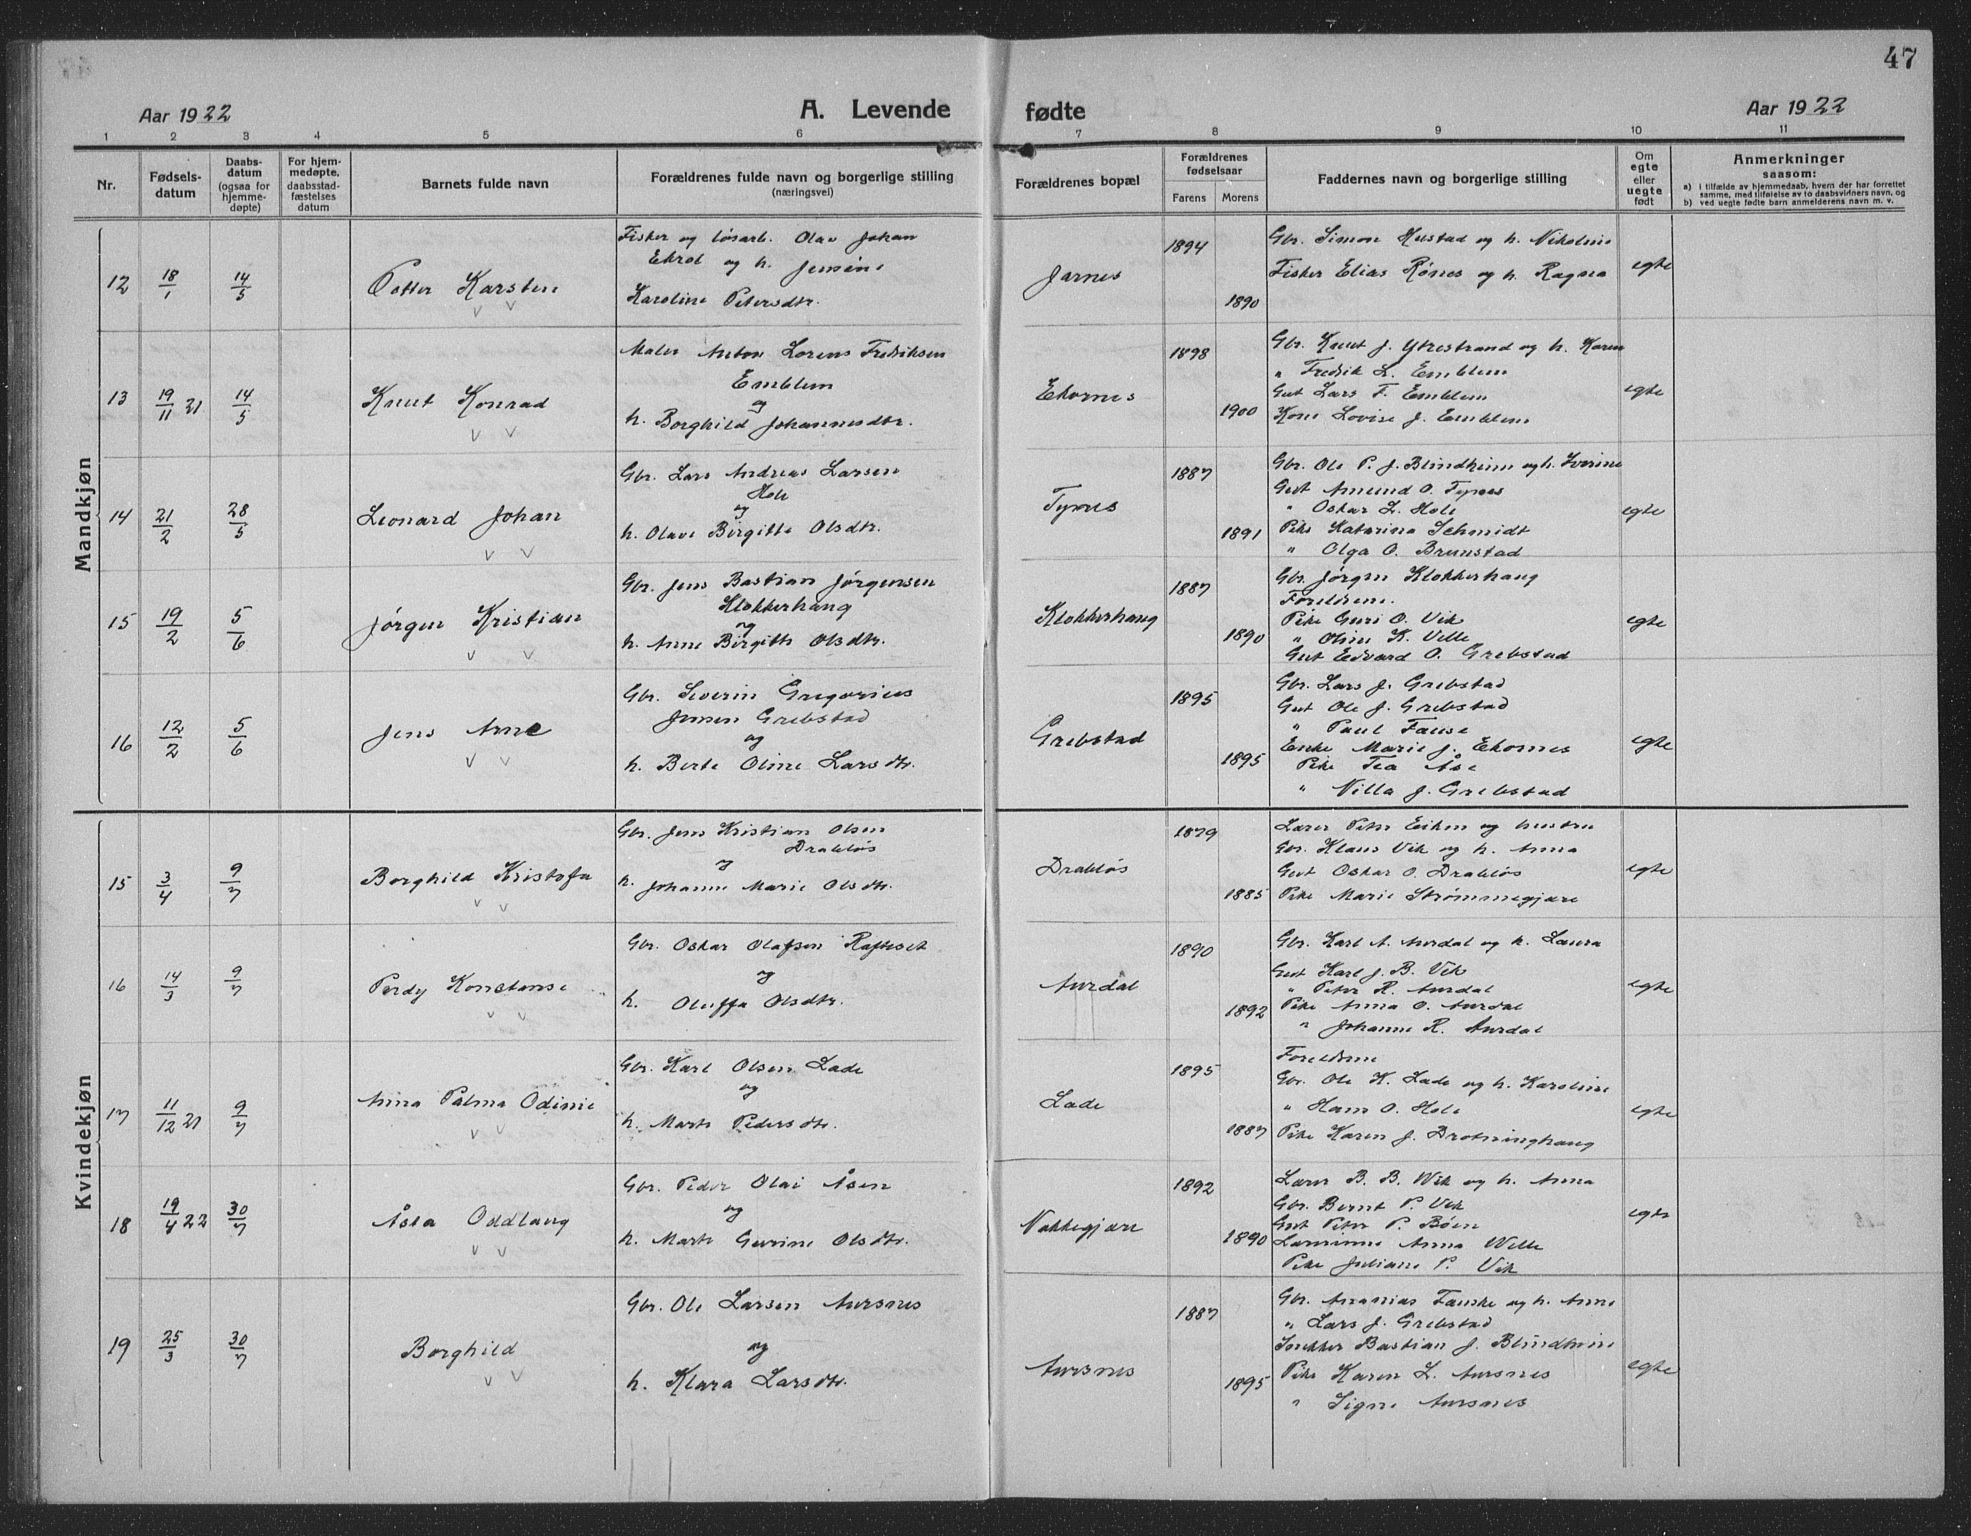 47
Aar 1922
A. Levende
fødte
Aar 1922
1 2 3 4 5 6 7 8 9 10 11
Nr.
Fødsels-
datum
Daabs-
datum
(ogsaa for
hjemme-
døpte)
For hjem-
medøpte.
daabsstad-
fæstelses
datum
Barnets fulde navn
Forældrenes fulde navn og borgerlige stilling
(næringsvei)
Forældrenes bopæl
Forældrenes
fødselsaar
Farens
Morens
Faddernes navn og borgerlige stilling
Om
egte
eller
uegte
født
Anmerkninger
saasom:
a) i tilfælde av hjemmedaab, hvem der har forrettet
samme, med tilføielse av to daabsvidners navn, og
b) ved uegte fødte barn anmelderens navn m. v.
Mandkjøn
12 18/1 14/5
Petter Karsten
Fisker og løsarb. Olav Johan
Ekrol og h. Jensine
Karoline Petersdtr.
Jarnes
1894
1890
Gbr. Simon Hustad og h. Nikoline
Fisker Elias Rønes og h. Ragna
egte
13 19/11 21 14/5
Knut Konrad
Maler Anton Lorens Fredriksen
Emblem
og
h. Borghild Johannesdtr.
Ekornes
1898
1900
Gbr. Knut J. Ytrestrand og h. Karen
" Fredrik L. Emblem
Gut Lars F. Emblem
Kone Lovise J. Emblem
egte
14 21/2 28/5
Leonard Johan
Gbr. Lars Andreas Larsen
Hole
og
h. Olave Birgitte Olsdtr.
Tynes
1887
1891
Gbr. Ole P. J. Blindheim og h. Iverine
Gut Amund O. Tynes
" Oskar L. Hole
Pike Katarina Schmidt
" Olga O. Brunstad
egte
15 19/2 5/6
Jørgen Kristian
Gbr. Jens Bastian Jørgensen
Klokkerhaug
og
h. Anne Birgitte Olsdtr.
Klokkerhaug
1887
1890
Gbr. Jørgen Klokkerhaug
Foreldrene.
Pike Guri O. Vik
" Oline K. Velle
Gut Edvard O. Grebstad
egte
16 12/2 5/6
Jens Arne
Gbr. Severin Gregorius
Jensen Grebstad
og
h. Berte Oline Larsdtr.
Grebstad
1895
1895
Gbr. Lars J. Grebstad
Gut Ole J. Grebstad
" Paul Fause
Enke Marie J. Ekornes
Pike Tea Åse
" Villa J. Grebstad
egte
Kvindekjøn
15 3/4 9/7
Borghild Kristofa
Gbr. Jens Kristian Olsen
Drabløs
og
h. Johanne Marie Olsdtr.
Drabløs
1879
1885
Lærer Peter Eiken og hustru
Gbr. Klaus Vik og h. Anna
Gut Oskar O. Drabløs
Pike Marie Strømmegjære
egte
16 14/3 9/7
Perdy Konstanse
Gbr. Oskar Olafsen Rafteset
og
h. Oluffa Olsdtr.
Aurdal
1890
1892
Gbr. Karl A. Aurdal og h. Laura
Gut Karl J. B. Vik
" Peter R. Aurdal
Pike Anna O. Aurdal
" Johanne R. Aurdal
egte
17 11/12 21 9/7
Anna Palma Odinie
Gbr. Karl Olsen Lade
og
h. Marte Pedersdtr.
Lade
1895
1887
Foreldrene
Gbr. Ole K. Lade og h. Karoline
" Hans O. Hole
Pike Karen J. Drotninghaug
egte
18 19/4 22 30/7
Åsta Oddlaug
Gbr. Peder Olai Åsen
og
h. Marte Gurine Olsdtr.
Nakkegjære
1892
1890
Lærer B. B. Vik og h. Anna
Gbr. Bernt P. Vik
Gut Peter P. Bøen
Lærerinne Anna Welle
Pike Juliane P. Vik
egte
19 25/3 30/7
Borghild
Gbr. Ole Larsen Aursnes
og
h. Klara Larsdtr.
Aursnes
1887
1895
Gbr. Ananias Fauske og h. Anne
" Lars J. Grebstad
Snekker Bastian J. Blindheim
Pike Karen L. Aursnes
" Signe Aursnes
egte